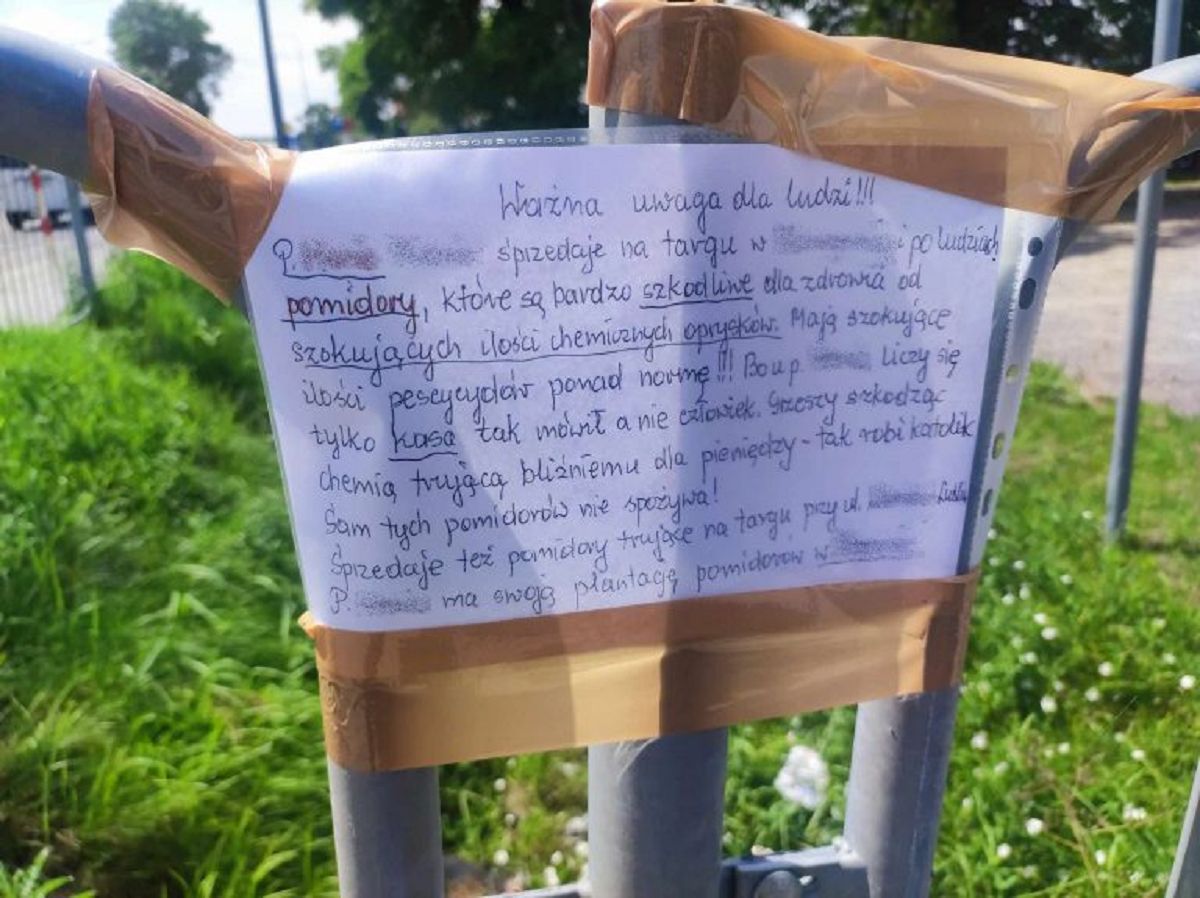 Ważna uwaga dla ludzi!!!
P. sprzedaje na targu w i po ludziach!
pomidory, które są bardzo szkodliwe dla zdrowia od
szokujących ilości chemicznych oprysków. Mają szokujące
ilości pescycydów ponad normę!!! Bo u p. liczy się
tylko kasa tak mówił a nie człowiek. Grzeszy szkodząc
chemią trującą bliźniemu dla pieniędzy - tak robi katolik
Sam tych pomidorów nie spożywa!
Sprzedaje też pomidory trujące na targu przy ul.
P. ma swoją plantagę pomidorów w